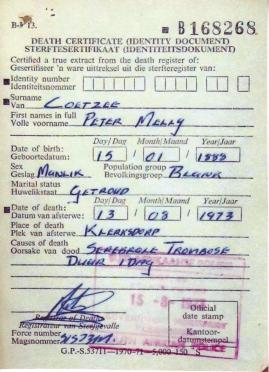 B-1 13.
B168268
DEATH CERTIFICATE (IDENTITY DOCUMENT)
STERFTESERTIFIKAAT (IDENTITEITSDOKUMENT)
Certified a true extract from the death register of:
Gesertifiseer 'n ware uittreksel uit die sterfteregister van:
Identity number
Identiteitsnommer
Surname
Van COETZEE
First names in full
Volle voorname PETER
Day/Dag Month/Maand Year/Jaar
Date of birth:
Geboortedatum: 15 / 01 / 1888
Sex Population group
Geslag MANLIK Bevolkingsgroep BLANK
Marital status
Huwelikstaat GETROUD
Day/Dag Month/Maand Year/Jaar
Date of death:
Datum van afsterwe: 13 / 08 / 1973
Place of death
Plek van afsterwe KLERKSDORP
Causes of death
Oorsake van dood SEREBRALE TROMBOSE
DUUR 1 DAG
15 -8
Official
date stamp
Registrar of Deaths
Registrateur van Sterfgevalle
Kantoor-
datumstempel
Force number
Magsnommer
POLICE
G.P.-S.